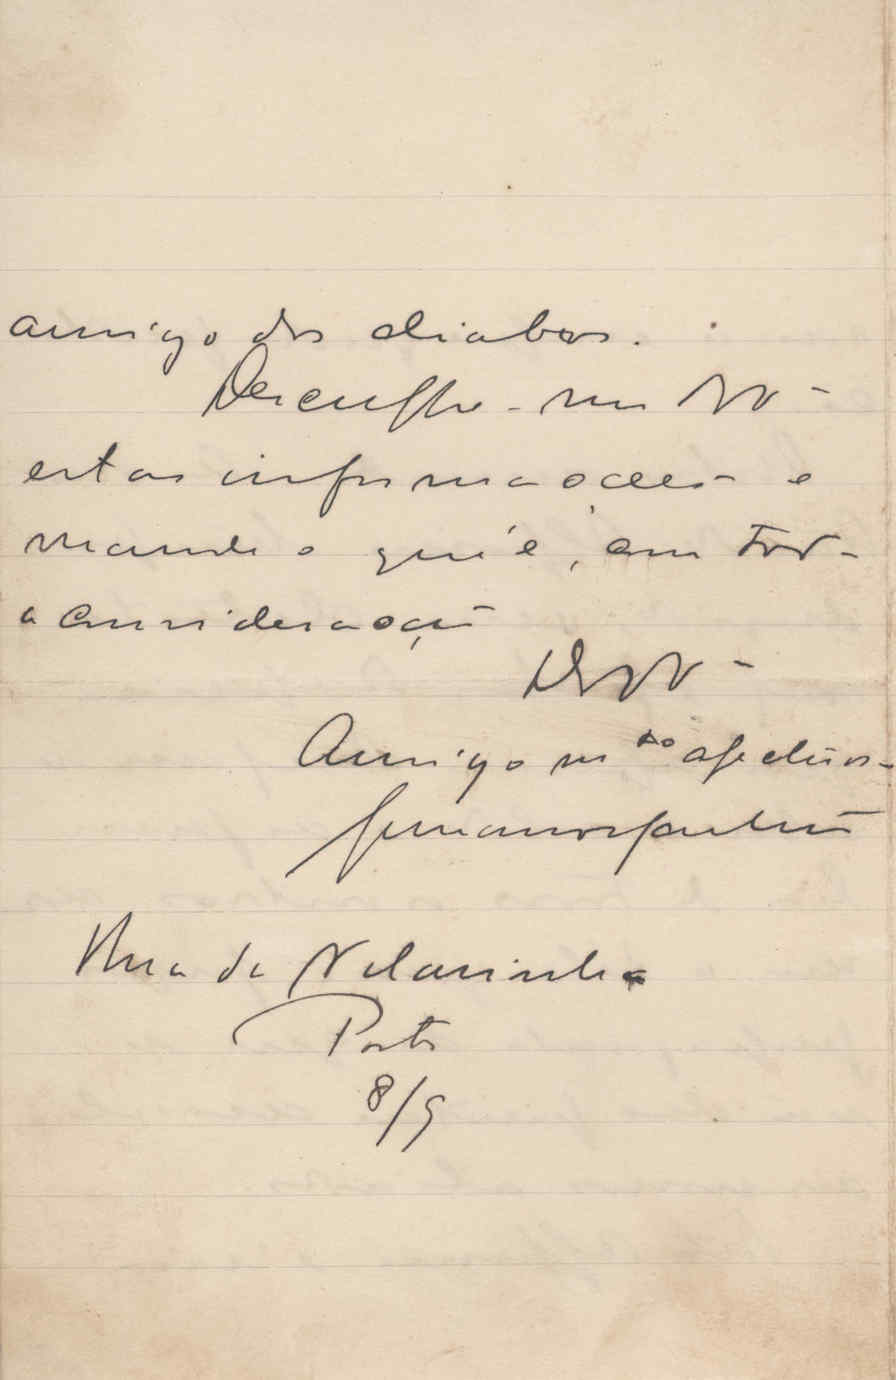 amigo dos diabos.
Desculpe-me
estas informações e
mande o qu'é, com tod-
a consideração
De
Amigo m.to afectuos
Rua de Vilarinha
Porto
8/9